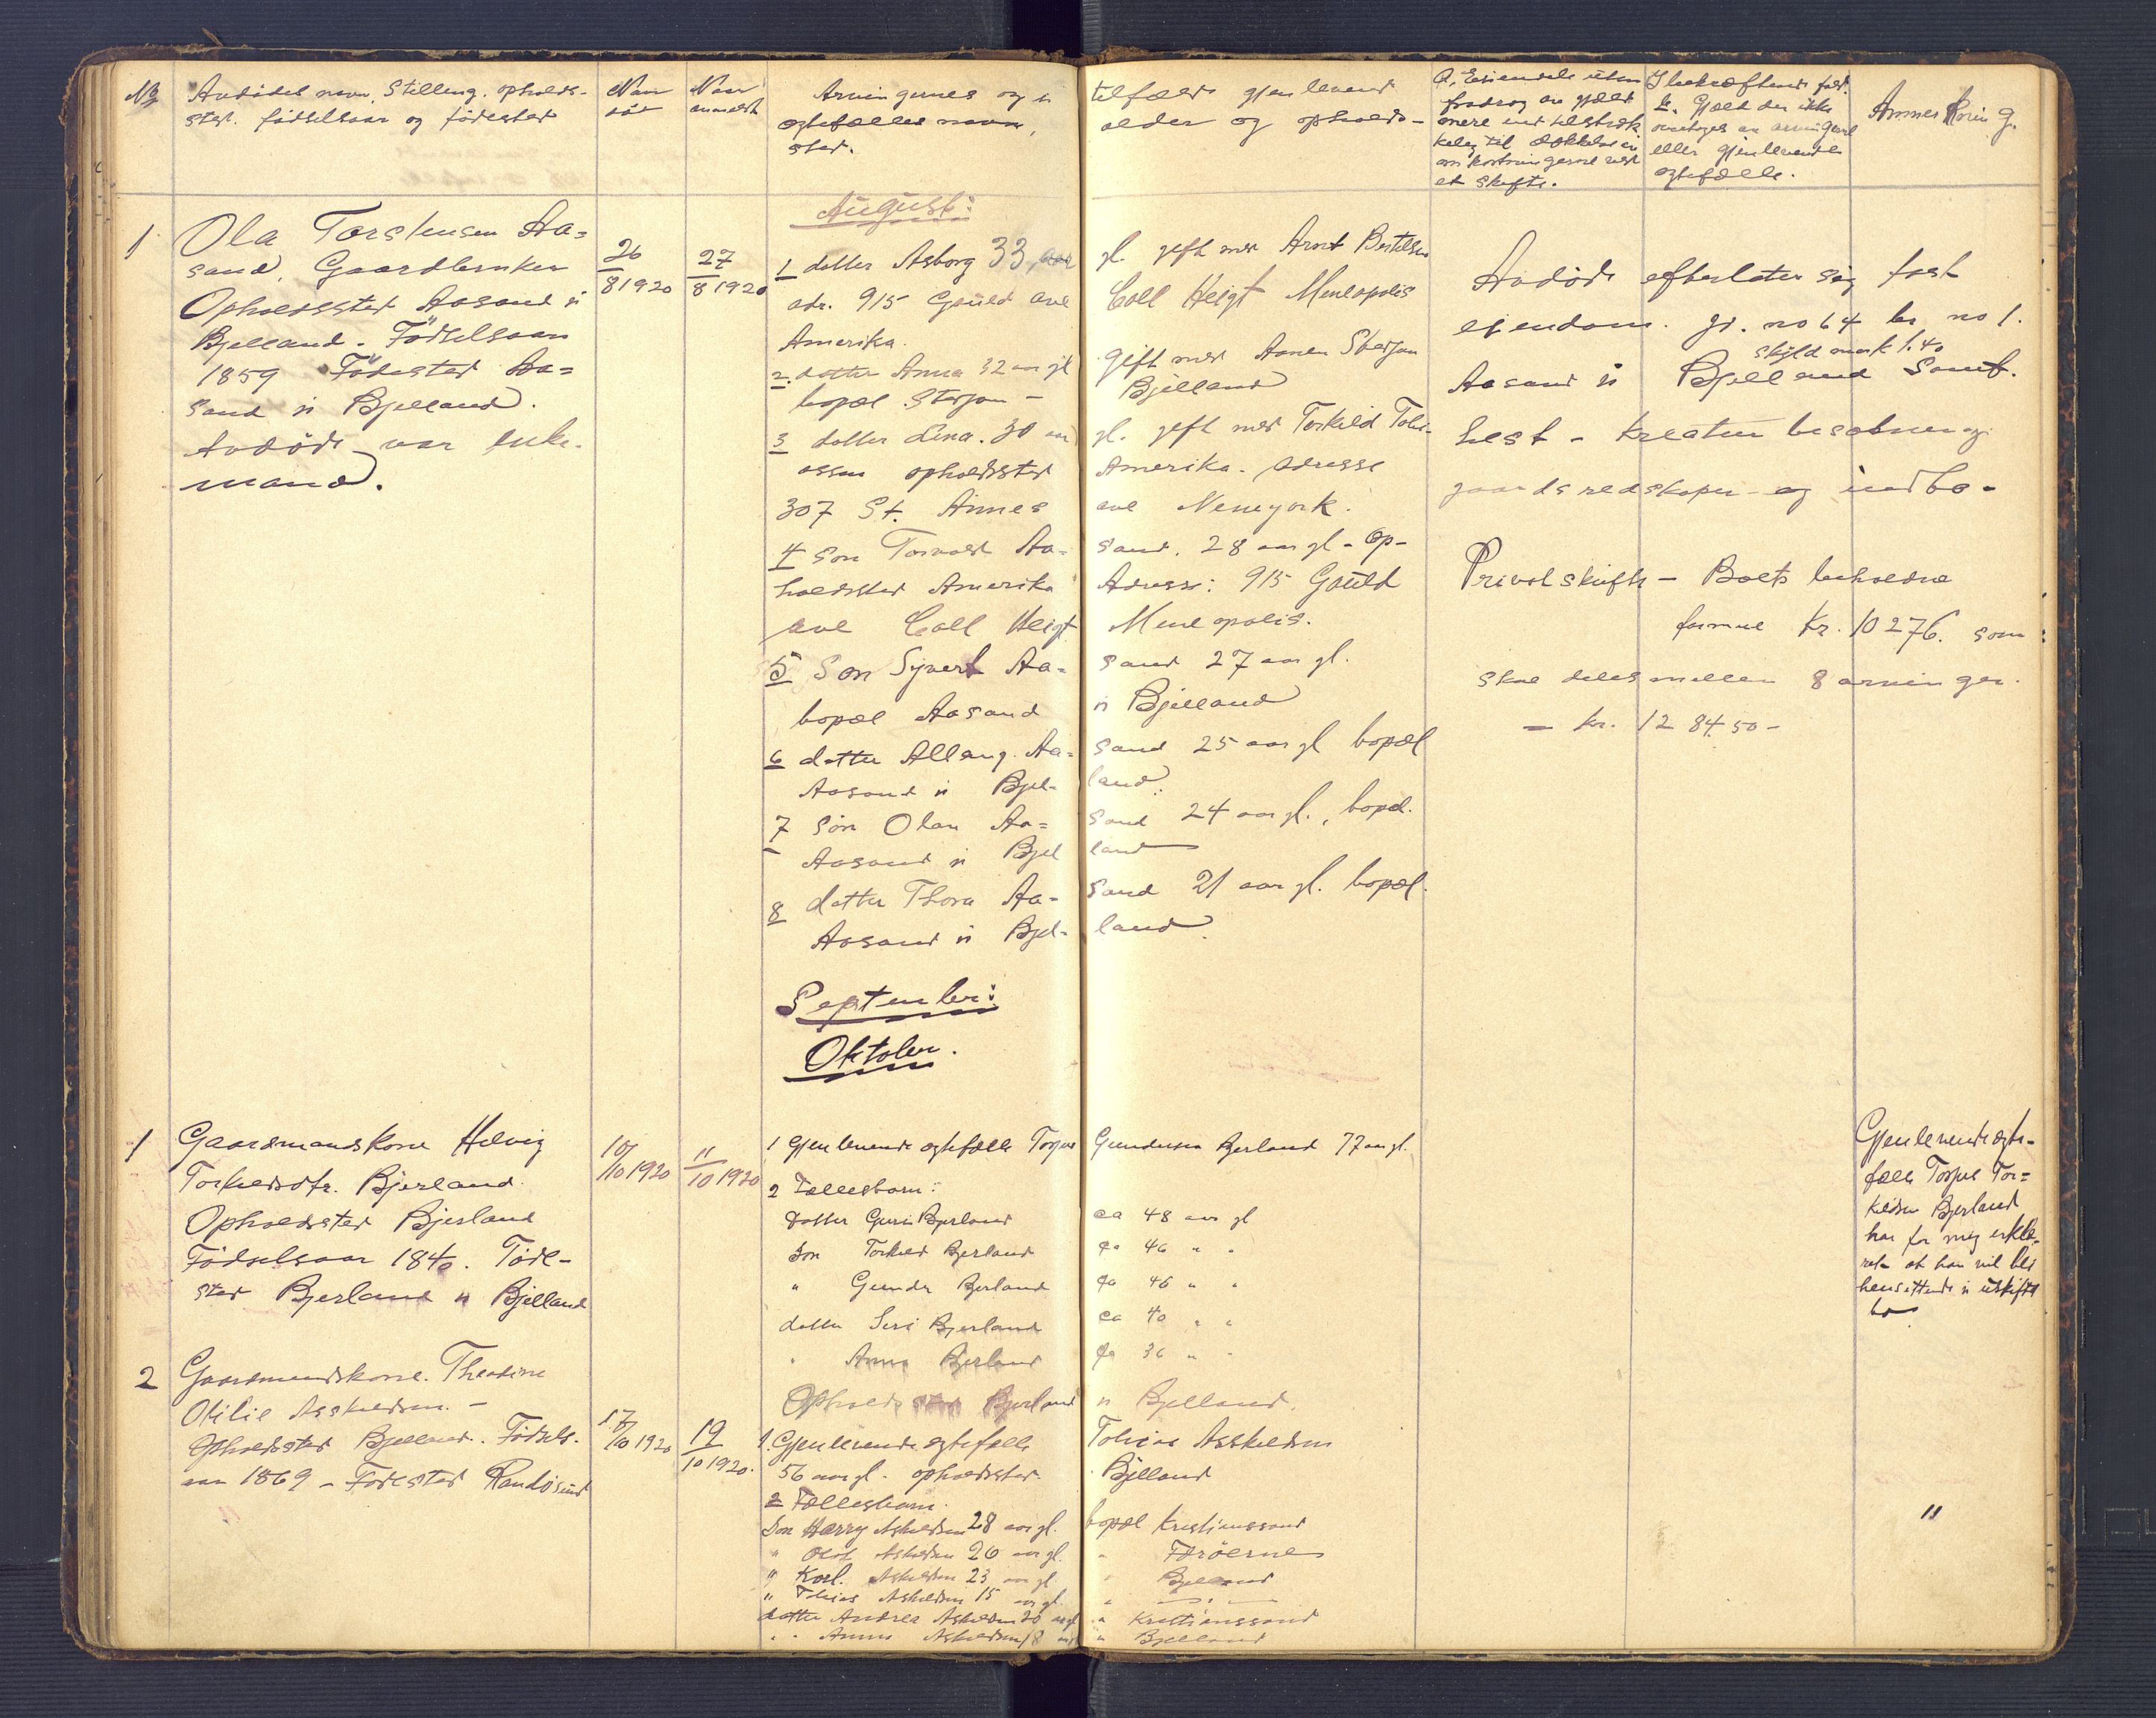 No
Avdødes navn, Stilling, opholds-
sted. fødselsaar og fødested
Naar
død
Naar
anmeldt
Arvingernes og i
ogtefælles navn,
sted.
tilfælde gjenlevend
alder og opholds-
eller gjenlevende
ogtefælle.
August:
1
Ola Torstensen Aa=
sand, Gaardbruker
Opholdssted Aasand i
Bjelland. Fødselsaar
1859 Fødested Aa=
sand i Bjelland.
Avdøde var enke-
mand.
26
8 1920
27
8 1920
1 datter Asborg 33 aar
gl. gift med Arnt Bertelsen
adr. 915 Gould ave
Coll Heigt Mineapolis
Amerika.
2. datter Anna 32 aar gl
gift med Stersjan
bopæl Stersjan -
Bjelland
3 datter Lina. 30 aar
gl. gift med Torkild Tobi-
assen opholdssted
Amerika. Adresse
307 St. Annes
ave Newyork.
4 Søn Torvald Aa=
sand. 28 aar gl - Op-
holdssted Amerika
Adresse: 915 Gould
ave Coll Heigt
Mineapolis.
5 Søn Syvert Aa=
sand 27 aar gl.
bopæl Aasand
i Bjelland
6 datter Allang. Aa=
sand 25 aar gl bopæl
Aasand i Bjel-
land.
7 søn Olav Aa=
sand 24 aar gl., bopæl.
Aasand i Bjel
land
8 datter Thora Aa=
sand 21 aar gl. bopæl.
Aasand i Bjel-
land.
Avdøde efterlater sig fast
eiendom. gr. no 64 br no 1.
skyld mark 1.40
Aasand i Bjelland Samt.
hest - kreatur besætning
gaardsredskaper - og indbo -
Privatskifte - Boets beholdne
formue Kr. 10276. som
skal deles mellem 8 arvinger.
= kr. 1284.50 -
September:
Oktober.
1
Gaardmandskone Helvig
Torkeldsdtr. Bjerland.
Opholdssted Bjerland
Fødselsaar 1840. Føde-
sted Bjerland i Bjelland
10/10 1920
11
10 1920
1 Gjenlevende ogtefælle Torjus
Gundersen Bjerland 77 aar gl.
2 Fællesbarn:
Datter Guri Bjerland
ca 48 aar gl
Søn Torkeld Bjerland
ca 46 " "
" Gunder Bjerland
ca 46 " "
datter Siri Bjerland
ca 40 " "
" Anna Bjerland
ca 36 " "
Opholdssted Bjerland
i Bjelland.
Gjenlevende ogte-
fælle Torjus Tor=
kildsen Bjerland
har for mig erklæ-
ret at han vil bli
hensittende i uskiftet
bo.
2
Gaardmandskone. Theodine
Otilie Asskeldsen. -
Opholdssted Bjelland. Fødsels-
aar 1869 - Fødested Randøsund
17/10 1920
19
10 1920.
1. Gjenlevende ogtefælle
Tobias Asskeldsen
56 aar gl. opholdssted.
Bjelland
2 Fællesbarn.
Søn Harry Askeldsen 28 aar gl.
bopæl Kristianssand
" Olaf Askeldsen 26 aar gl.
" Færøerne
" Karl. Askeldsen 23 aar gl.
" Bjelland
" Tobias Askeldsen 15 aar gl.
" - " -
datter Andrea Askeldsen 20 aar gl
" Kristianssand
" Anna Askeldsen 18 aar gl
" Bjelland
"